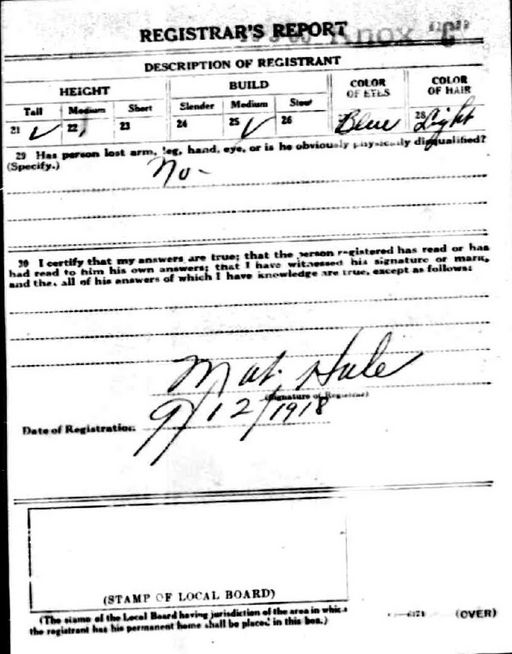 Knox "C"
REGISTRAR'S REPORT
DESCRIPTION OF REGISTRANT
HEIGHT BUILD COLOR OF EYES COLOR OF HAIR
Tall Medium Short Slender Medium Stout
21 ✓ 22 23 24 25 ✓ 26 Blue 28 Light
29 Has person lost arm, leg, hand, eye, or is he obviously physically disqualified?
(Specify.) No-
30 I certify that my answers are true; that the person registered has read or has
had read to him his own answers; that I have witnessed his signature or mark,
and that all of his answers of which I have knowledge are true, except as follows:
Mat. Hale
(Signature of Registrar)
Date of Registration 9/12/1918
(STAMP OF LOCAL BOARD)
(The stamp of the Local Board having jurisdiction of the area in which
the registrant has his permanent home shall be placed in this box.)
(OVER)